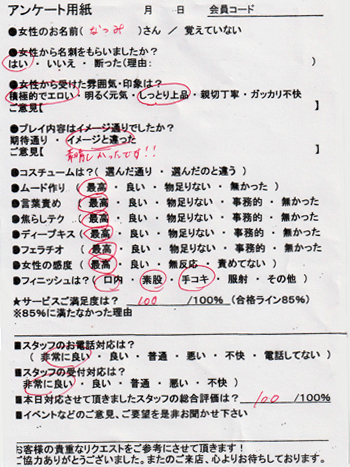 アンケート用紙　　月　　日　　会員コード
●女性のお名前(なつみ)さん / 覚えていない
●女性から名刺をもらいましたか?
はい・いいえ・断った(理由:　　　)
●女性から受けた雰囲気・印象は?
積極的でエロい・明るく元気・しっとり上品・親切丁寧・ガッカリ不快
ご意見【　　　】
●プレイ内容はイメージ通りでしたか?
期待通り・イメージと違った
ご意見【素晴しかったです!!　】
●コスチュームは?( 選んだ通り ・ 選んだのと違う )
●ムード作り ( 最高 ・ 良い ・ 物足りない ・ 無かった )
●言葉責め ( 最高 ・ 良い ・ 物足りない ・ 事務的 ・ 無かった )
●焦らしテク ( 最高 ・ 良い ・ 物足りない ・ 事務的 ・ 無かった )
●ディープキス ( 最高 ・ 良い ・ 物足りない ・ 事務的 ・ 無かった )
●フェラチオ ( 最高 ・ 良い ・ 物足りない ・ 事務的 ・ 無かった )
●女性の感度 ( 最高 ・ 良い ・ 無反応 ・ 責めてない )
●フィニッシュは? ( 口内 ・ 素股 ・ 手コキ ・ 服射 ・ その他 )
★サービスご満足度は? 100 /100% (合格ライン85%)
※85%に満たなかった理由
■スタッフのお電話対応は?
( 非常に良い ・ 良い ・ 普通 ・ 悪い ・ 不快 ・ 電話してない )
■スタッフの受付対応は?
非常に良い ・ 良い ・ 普通 ・ 悪い ・ 不快 )
■本日対応させて頂きましたスタッフの総合評価は? 100 /100%
■イベントなどのご意見、ご要望を是非お聞かせ下さい
お客様の貴重なリクエストをご参考にさせて頂きます!
ご協力ありがとうございました。またのご来店、心よりお待ちしております。